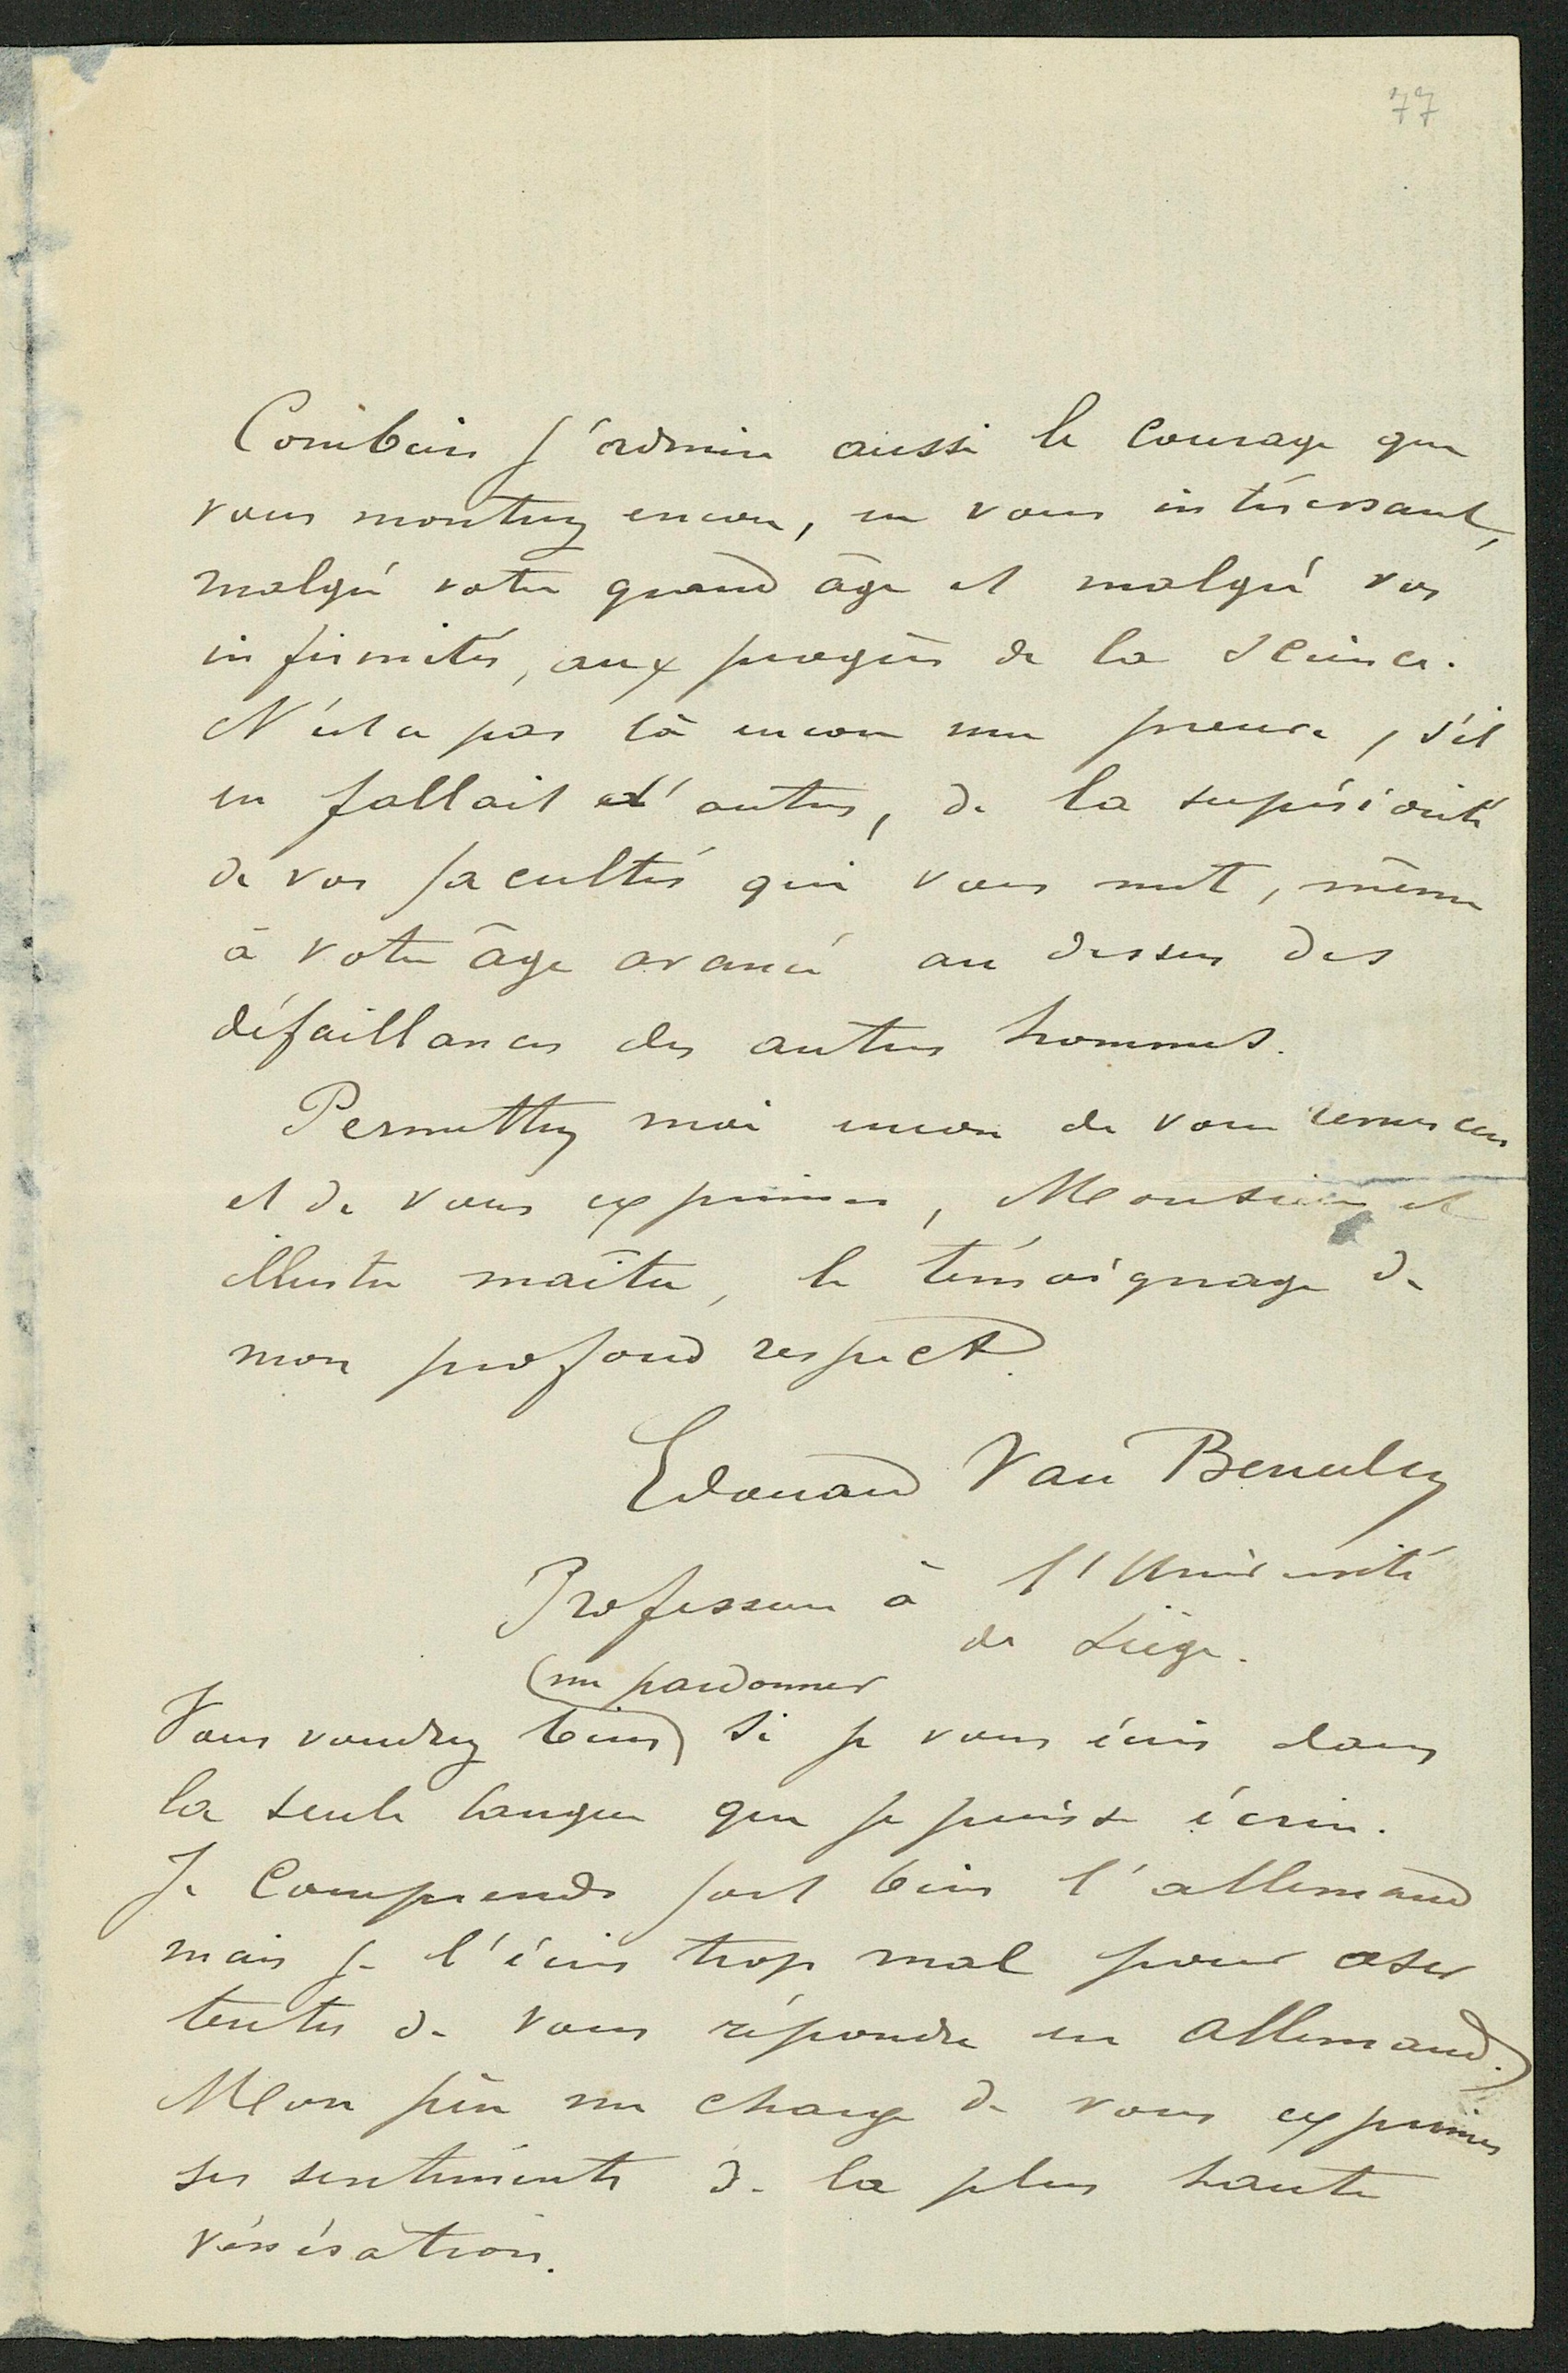 77
Combien j'admire aussi le courage que
vous montrez encore, en vous intéressant,
malgré votre grand âge et malgré vos
infirmités, aux progrès de la science.
N'est ce pas là encore une preuve, s'il
en fallait d'autres, de la supériorité
de vos facultés qui vous met, même
à votre âge avancé au dessus des
défaillances des autres hommes.
Permettez moi encore de vous remercier
et de vous exprimer, Monsieur et
illustre maître, le témoignage de
mon profond respect.
Edouard Van Beneden
Professeur à l'Université
de Liège.
(me pardonner
Vous voudrez bien) si je vous écris dans
la seule langue que je puisse écrire.
Je comprends fort bien l'allemand
mais je l'écris trop mal pour oser
tenter de vous répondre en allemand.)
Mon père me charge de vous exprimer
ses sentiments de la plus haute
vénération.